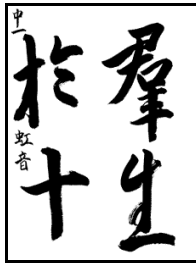 羣生
於十
中一 虹音